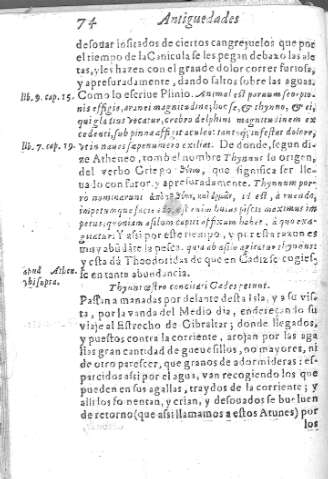 74 Antiguedades
desouar infestados de ciertos cangrejuelos que por
el tiempo de la Canicula se les pegan debaxo las ale
tas, y les hazen con el grande dolor correr furiosos,
y apresuradamente, dando saltos sobre las aguas.
lib. 9. cap. 15. Como lo escriue Plinio. Animal est paruum scorpio-
nis effigie, aranei magnitudine; hoc se, & thynno, & ei,
qui gladius vocatur, crebro delphini magnitudinem ex
cedenti, sub pinna affigit aculeo: tantoq; infestat dolore,
lib. 7. cap. 19. vt in naues saepenumero exiliat. De donde, segun di-
ze Atheneo, tomò el nombre Thynnus su origen,
del verbo Griego que significa ser lle-
uado con furor, y apresuradamente. Thynnum por-
ro nominarunt id est, à ruendo,
impetumque faciendo, est enim huius piscis maximus im
petus, quoniam asilum caput efficcit habet, à quo exa-
gitatur. Y assi por este tiempo, y por esta razon es
muy abũdãte la pesca, quia ab asilo agitatur thynnus:
apud Athen. y esta dà Theodoridas de que en Cadiz se cogies-
vbi supra. se en tanta abundancia.
Thynni œstro concitati Gades petunt.
Passan a manadas por delante desta Isla, y a su vis-
ta, por la vanda del Medio dia, endereçando su
viaje al Estrecho de Gibraltar; donde llegados,
y puestos contra la corriente, arojan por las aga
llas gran cantidad de gueuesillos, no mayores, ni
de otro parescer, que granos de adormideras: es-
parcidos assi por el agua, van recogiendo los que
pueden en sus agallas, traydos de la corriente; y
alli los fomentan, y crian, y desouados se bueluen
de retorno (que assi llamamos a estos Atunes) por
los